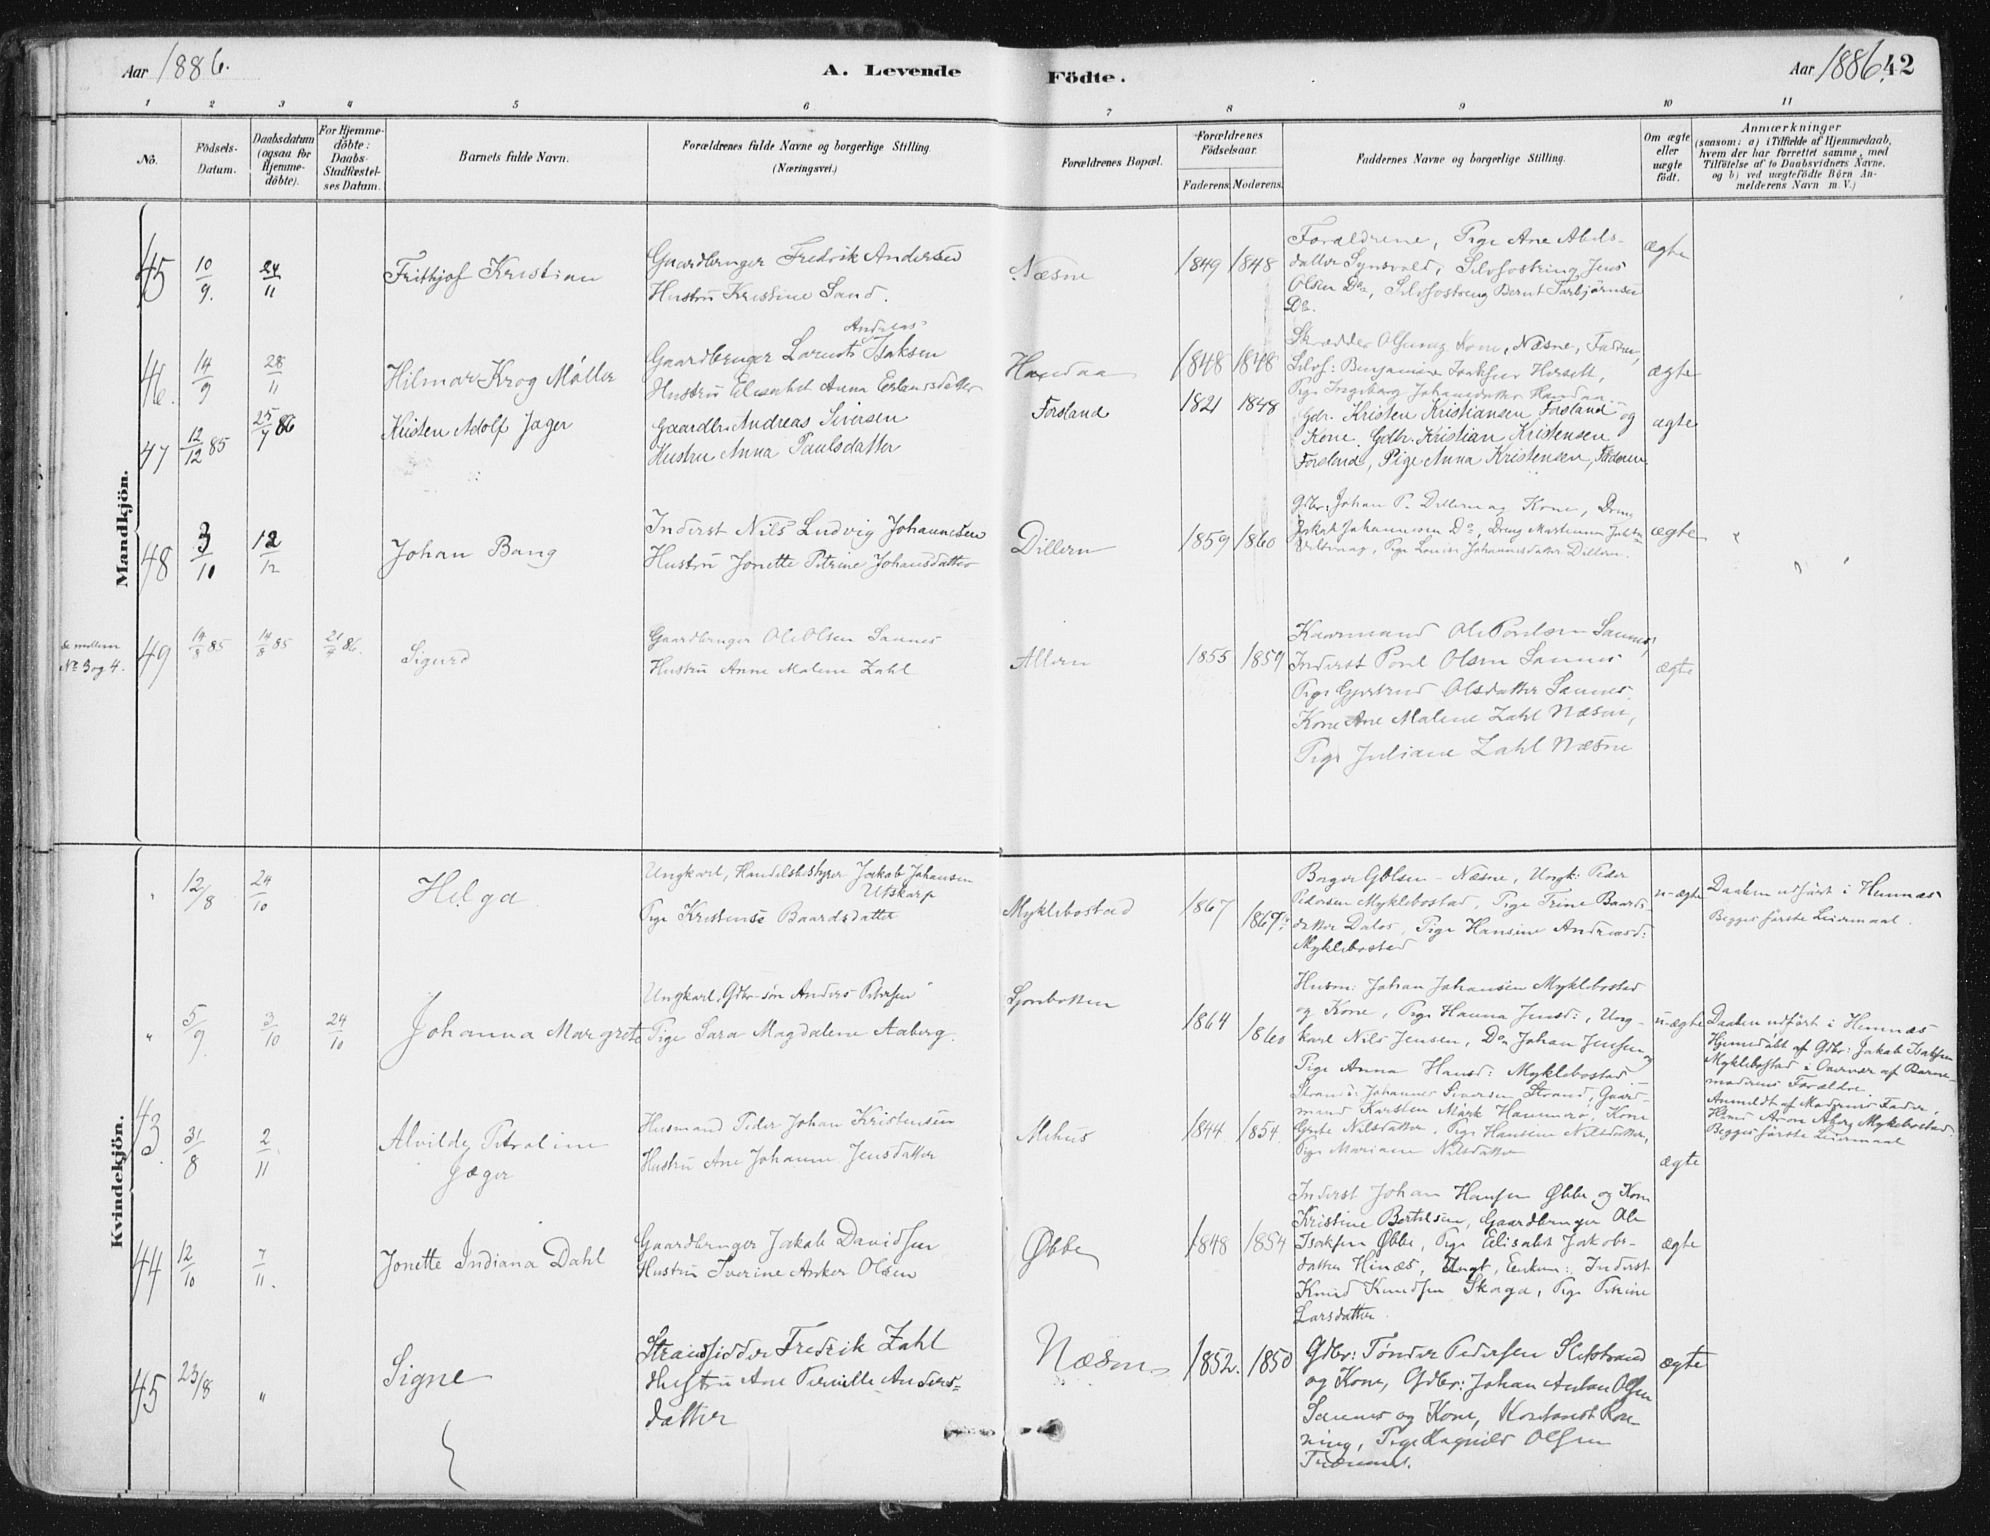 Aar 1886.
A. Levende
Födte.
Aar 1886.
42
1 2 3 4 5 6 7 8 9 10 11
No.
Födsels-
Datum.
Daabsdatum
(ogsaa for
Hjemme-
döbte).
For Hjemme-
döbte:
Daabs-
Stadfæstel-
ses Datum.
Barnets fulde Navn.
Forældrenes fulde Navne og borgerlige Stilling
(Næringsvei.)
Forældrenes Bopæl.
Forældrenes
Födselsaar.
Faderens.
Moderens.
Faddernes Navne og borgerlige Stilling.
Om ægte
eller
uægte
födt.
Anmærkninger
(saasom: a) i Tilfælde af Hjemmedaab,
hvem der har forrettet samme, med
Tilföielse af to Daabsvidners Navne,
og b) ved uægtefödte Börn An-
melderens Navn m. V.)
Mandkjön.
45
10/9.
24/11
Frithjof Kristian
Gaardbruger Fredrik Andersen
Hustru Kristine Sand.
Næsne
1849
1848
Forældrene, Pige Ane Abels-
datter Synsvold, Jens
Olsen Do, Bernt Torbjørnsen
Do.
ægte
46.
14/9
28/11
Hilmar Krog Møller
Andreas
Gaardbruger Lorents Isaksen
Hustru Elisabet Anna Erlandsdatter
Handaa
1848
1848
Skrædder Olsen og Kone, Næsne, Faderen,
Selvf: Benjamin Isaksen
Pige Ingeborg Johansdatter Handaa
ægte
47
12/12 85
25/4 86
Kristen Adolf Jager
Gaardbr. Andreas Siversen
Hustru Anna Paulsdatter
Forsland
1821
1848
Gdr. Kristen Kristiansen Forsland og
Kone. Gdbr. Kristian Kristensen
Forsland, Pige Anna Kristensen, Faderen.
ægte
48
3/10
12/12
Johan Bang
Inderst Nils Ludvig Johannesen
Hustru Jonette Petrine Johansdatter
Dillern
1859
1860
Gdbr: Johan P. Dillern og Kone, Dreng
Jakob Johannesen Do, Dreng
Pige Louise Johannesdatter Dillern.
ægte
Se mellem
No 3 og 4.
49
14/8 85
14/8 85
21/4 86.
Sigurd
Gaardbruger Ole Olsen Sannes
Hustru Anne Malene Zahl
Allern
1855
1859
Kaarmand Ole Poulsen Sannes,
Inderst Poul Olsen Sannes
Pige Gjertrud Olsdatter Sannes,
Kone Ane Malene Zahl Næsne,
Pige Juliane Zahl Næsne
ægte
Kvindekjön.
"
12/8
24/10
Helga
Ungkarl, Handelsbestyrer Jakob Johansen
Utskarp
Pige Kristense Baardsdatter
Myklebostad
1867
1869
Borger Olsen - Næsne, Ungk: Peder
Pedersen Myklebostad, Pige Trine Baards-
datter Dalos, Pige Hansine Andreasd:
Myklebostad
u-ægte
Daaben udført i Hemnæs
Begges første Leiermaal.
"
5/9.
3/10
24/10
Johanna Margrete
Ungkarl, Gdbr-søn Anders Petersen
Pige Sara Magdalene Aaberg.
Sjonbotten
1864
1860
Husm: Johan Johansen Myklebostad
og Kone, Pige Hanna Jensd:, Ung-
karl Nils Jensen, Do Johan Jensen og
Pige Anna Hansd: Myklebostad.
u-ægte
Daaben udført i Hemnæs
Hjemmedøbt af Gdbr: Jakob Isaksen
Myklebostad i Overvær af Barne-
moderens Forældre
Anmeldt af Moderens Fader,
Husm Aron Aberg Myklebostad.
Begges første Leiermaal
43
31/8
2/11
Alvilde Petroline
Jæger
Husmand Peder Johan Kristensen
Hustru Ane Johanna Jensdatter
Mehus
1844
1854.
Johannes Siversen Strand, Gaard-
mand Karsten Mark Hammerø, Kone
Grete Nilsdatter, Pige Hansine Nilsdatter,
Pige Mariane Nilsdatter
ægte
44
12/10
7/11.
Jonette Indiana Dahl
Gaardbruger Jakob Davidsen
Hustru Iverine Anker Olsen
Øbbe
1848
1854
Inderst Johan Hansen Øbbe og Kone
Kristine Bertelsen, Gaardbruger Ole
Isaksen Øbbe, Pige Elisabet Jakobs-
datter Hinæs, Inderst
Knud Knudsen Skoga, Pige Petrine
Larsdatter.
ægte
45
23/8
"
Signe
Strandsidder Fredrik Zahl
Hustru Ane Pernille Anders-
datter
Næsne
1852.
1850
Gdbr: Tønder Pedersen
og Kone, Gdbr: Johan Anton Olsen
Sannes og Kone, Kontorist Røn-
ning, Pige Ragnild Olsen
ægte